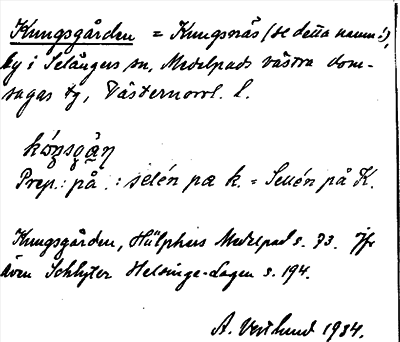 Kungsgården = Kungsnäs (se detta namn!),
by i Selångers sn, Medelpads västra dom-
sagas tg, Västernorrl. l.
kóŋsgąn
Prep.: på : selén pæ k. = Sellén på K.
Kungsgården, Hülphers Medelpad s. 73. Jfr
även Schlyter Helsinge-Lagen s. 194.
A. Vestlund 1934.